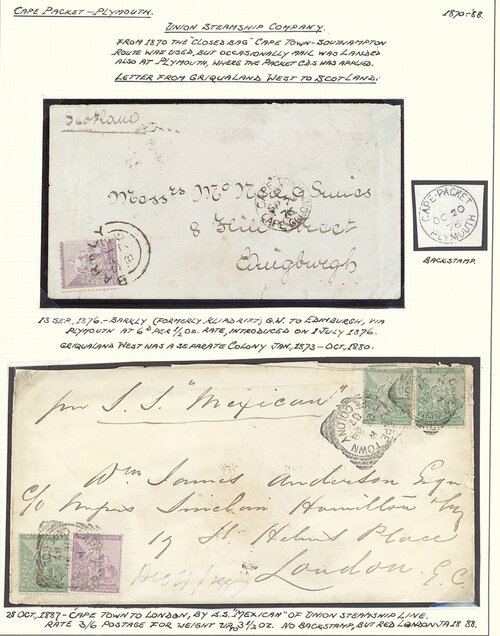 CAPE PACKET - PLYMOUTH.
1870-88.
UNION STEAMSHIP COMPANY.
FROM 1870 THE "CLOSED BAG" CAPE TOWN-SOUTHAMPTON
ROUTE WAS USED, BUT OCCASIONALLY MAIL WAS LANDED
ALSO AT PLYMOUTH, WHERE THE PACKET CDS WAS APPLIED.
LETTER FROM GRIQUALAND WEST TO SCOTLAND.
Scotland
Messrs
8 Hill Street
Edingburgh
CAPE-PACKET
OC 20
76
PLYMOUTH
BACKSTAMP.
13 SEP, 1876.- BARKLY (FORMERLY KLIPDRIFT) G.W. TO EDINBURGH, VIA
PLYMOUTH AT 6d PER 1/2 OZ. RATE, INTRODUCED ON 1 JULY 1876.
GRIQUALAND WEST WAS A SEPARATE COLONY JAN, 1873-OCT, 1880.
per S. S. "Mexican"
Wm James Anderson Esqre
c/o Sinclair Hamilton
17 St Helens Place
London. E.C.
28 OCT, 1887- CAPE TOWN TO LONDON, BY S.S. "MEXICAN" OF UNION STEAMSHIP LINE.
RATE 3/6 POSTAGE FOR WEIGHT UP TO 3 1/2 OZ. NO BACKSTAMP, BUT RED LONDON JA 18 88.